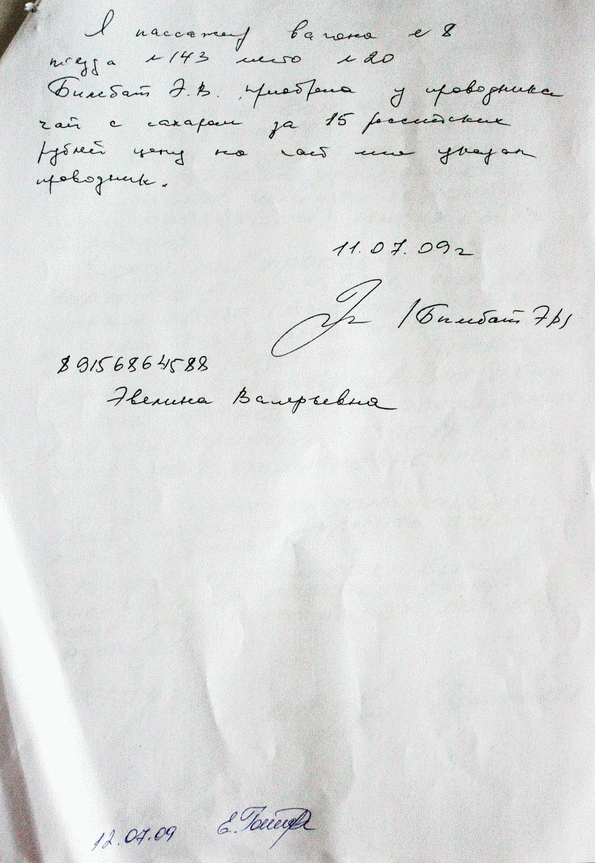 Я пассажир вагона № 8
поезда № 143 место № 20
Бимбат Э.В. приобрела у проводника
чай с сахаром за 15 российских
рублей цену на чай мне указал
проводник.
11.07.09г
/Бимбат Э.В/
89156864588
Эвелина Валерьевна
12.07.09